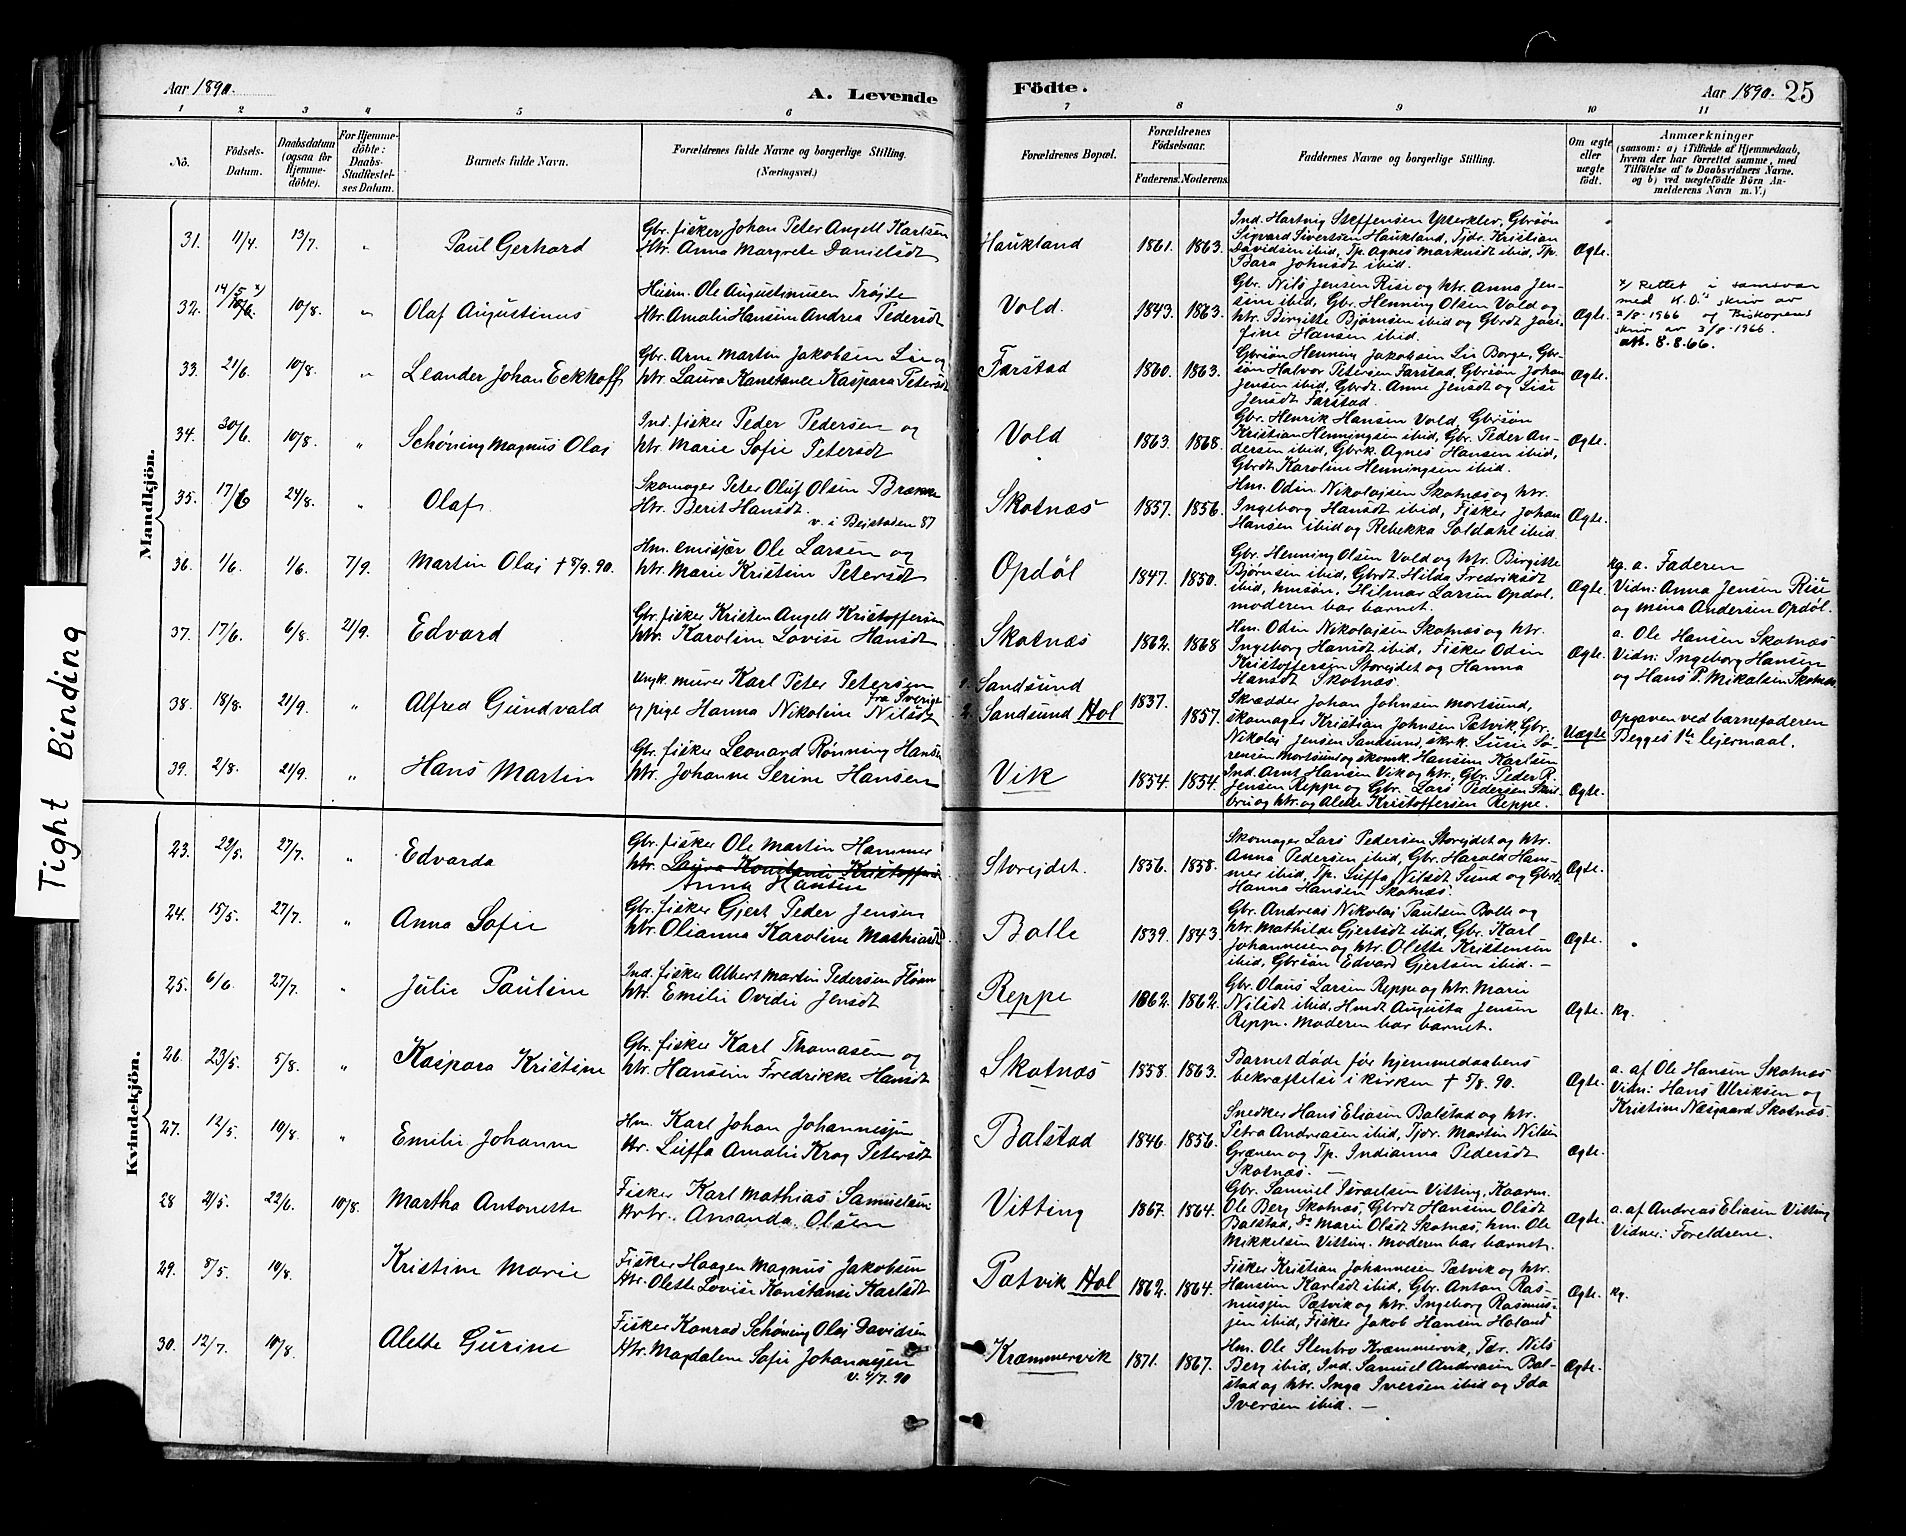 Aar 1890.
A. Levende
Födte.
Aar 1890. 25
1 2 3 4 5 6 7 8 9 10 11
No.
Födsels-
Datum.
Daabsdatum
(ogsaa for
Hjemme-
döbte).
For Hjemme-
döbte:
Daabs-
Stadfæstel-
ses Datum.
Barnets fulde Navn.
Forældrenes fulde Navne og borgerlige Stilling.
(Næringsvei.)
Forældrenes Bopæl.
Forældrenes
Födselsaar.
Faderens. Moderens.
Faddernes Navne og borgerlige Stilling.
Om ægte
eller
uægte
födt.
Anmærkninger
(saasom: a) i Tilfælde af Hjemmedaab,
hvem der har forrettet samme, med
Tilföielse af to Daabsvidners Navne,
og b) ved uægtefödte Börn An-
melderens Navn m. V.)
Tight Binding
Mandkjön.
31. 11/4. 13/7. " Paul Gerhard
Gbr. fisker Johan Peter Angell Karlsen
Htr. Anna Margrete Danielsdt
Haukland 1861. 1863.
Ind. Hartvig Steffensen Ytterklev, Gbrsøn
Sigvard Sivertsen Haukland, Tjdr. Kristian
Davidsen ibid, Tp. Agnes Markusdt ibid, Tp.
Bara Johnsdt ibid.
Ægte.
32. 14/5 x) 10/6. 10/8. " Olaf Augustinus
Husm. Ole Augustinusen Trøite
Htr. Amalie Hansine Andrea Pedersdt
Vold. 1843. 1863.
Gbr. Nils Jensen Rise og htr. Anna Jen-
sine ibid, Gbr. Henning Olsen Vold og
htr. Birgitte Bjørnsen ibid og Gbrdt Jose-
fine Hansen ibid.
Ægte.
x/ Rettet i samsvar
med K.D.'s skriv av
2/8-1966 og Biskopens
skriv av 3/8-1966.
att. 8.8.66.
33. 21/6. 10/8. " Leander Johan Eckhoff
Gbr. Arne Martin Jakobsen Lie og
htr. Laura Konstance Kaspara Petersdt
Farstad 1860. 1863.
Gbrsøn Henning Jakobsen Lie Borge, Gbr-
søn Halvor Petersen Farstad, Gbrsøn Johan
Jensen ibid, Gbrdt. Anne Jensdt og Lise
Jensdt Farstad.
Ægte.
34. 30/6. 10/8. " Schøning Magnus Olai
Ind. fisker Peder Pedersen og
htr. Marie Sofie Petersdt
Vold 1863. 1868.
Gbr. Henrik Hansen Vold, Gbrsøn
Kristian Henningsen ibid, Gbr. Peder An-
dersen ibid, Gbrk. Agnes Hansen ibid,
Gbrdt Karoline Henningsen ibid.
Ægte.
35. 17/6 24/8. " Olaf
Skomager Peter Oluf Olsen Brække
Htr. Berit Hansdt.
v. i Beistaden 87
Skotnæs 1857. 1856.
Hm. Odin Nikolajsen Skotnæs og htr.
Ingeborg Hansdt ibid, Fisker Johan
Hansen ibid og Rebekka Soldahl ibid.
Ægte.
36. 1/6. 1/6. 7/9. Martin Olai † 8/9.90.
Hm. emisjær Ole Larsen og
htr. Marie Kristine Petersdt
Opdøl 1847. 1850.
Gbr. Henning Olsen Vold og htr. Birgitte
Bjørnsen ibid, Gbrdt. Hilda Fredriksdt
ibid, hmsøn. Hilmar Larsen Opdøl,
moderen bar barnet.
Ægte.
kg. a. Faderen
Vidn: Anna Jensen Rise
og Mina Andersen Opdøl.
37. 17/6. 6/8. 21/9. Edvard
Gbr. fisker Kristen Angell Kristoffersen
htr. Karoline Lovise Hansdt
Skotnæs 1862. 1868
Hm. Odin Nikolajsen Skotnæs og htr.
Ingeborg Hansdt ibid, Fisker Odin
Kristoffersen Storejdet og Hanna
Hansdt Skotnæs.
Ægte.
a. Ole Hansen Skotnæs
Vidn: Ingeborg Hansen
og Hans P. Mikalsen Skotnæs
38. 18/8. 21/9. " Alfred Gundvald
Ungk. murer Karl Peter Petersen
fra Sverige
og pige Hanna Nikoline Nilsdt
1. Sandsund
2. Sandsund Hol 1837. 1857.
Skrædder Johan Johnsen Mortsund,
skomager Kristian Johnsen Pætvik, Gbr.
Nikolai Jensen Sandsund, skrk. Lusie Sø-
rensen Mortsund og skomk. Hansine Karlsen
Uægte
Opgaven ved barnefaderen
Begges 1ste lejermaal.
39. 2/8. 21/9. " Hans Martin
Gbr. fisker Leonard Rønning Hansen
htr. Johanne Serine Hansen
Vik 1854. 1854.
Ind. Arnt Hansen Vik og htr., Gbr. Peder R.
Jensen Reppe og Gbr. Lars Pedersen Sten-
bru og htr. og Alette Kristoffersen Reppe.
Ægte.
Kvindekjön.
23. 22/5. 27/7. " Edvarda
Gbr. fisker Ole Martin Hammer
htr. Laura Konstanse Kristoffersen
Anna Hansen
Storejdet. 1856. 1858.
Skomager Lars Pedersen Storejdet og htr.
Anna Pedersen ibid, Gbr. Harald Ham-
mer ibid, Tp. Luffa Nilsdt Sund og Gbrdt
Hanna Hansen Skotnæs.
Ægte.
24. 15/5. 27/7. " Anna Sofie
Gbr. fisker Gjert Peder Jensen
htr. Olianna Karoline Mathiasdt.
Bolle 1839. 1843.
Gbr. Andreas Nikolaj Paulsen Bolle og
htr. Mathilde Gjertsdt ibid, Gbr. Karl
Johannesen og htr. Olette Kristensen
ibid, Gbrsøn Edvard Gjertsen ibid. -
Ægte.
25. 6/6. 27/7. " Julie Pauline
Ind. fisker Albert Martin Pedersen Fløan
htr. Emilie Ovedie Jensdt
Reppe 1862. 1862.
Gbr. Olaus Larsen Reppe og htr. Marie
Nilsdt ibid, Hmdt Augusta Jensen
Reppe. Moderen bar barnet.
Ægte. kg.
26. 23/5. 5/8. " Kaspara Kristine
Gbr. fisker Karl Thomasen og
htr. Hansine Fredrikke Hansdt
Skotnæs 1858. 1863.
Barnet døde før hjemmedaabens
bekræftelse i kirken † 5/8.90.
Ægte.
a. af Ole Hansen Skotnæs
Vidn: Hans Ulriksen og
Kristine Næsgaard Skotnæs.
27. 12/5. 10/8. " Emilie Johanne
Hm. Karl Johan Johannesjen
Htr. Luffa Amalie Krog Petersdt
Balstad 1846. 1856.
Snedker Hans Eliasen Balstad og htr.
Petra Andreasen ibid, Tjdr. Martin Nilsen
Grænen og Tp. Indianna Pedersdt
Skotnæs. —
Ægte.
28 2/5. 22/6. 10/8. Martha Antonette
Fisker Karl Mathias Samuelsen
Htr. Amanda Olsen
Vitting 1867. 1864.
Gbr. Samuel Israelsen Vitting, Kaarm.
Ole Berg Skotnæs, Gbrdt Hansine Olsdt
Balstad, Do Marie Olsdt Skotnæs, hm. Ole
Mikkelsen Vitting. Moderen bar barnet.
Ægte.
a. af Andreas Eliasen Vitting
Vidner: Foreldrene.
29. 8/5. 10/8. Kristine Marie
Fisker Haagen Magnus Jakobsen
Htr. Olette Lovise Konstanse Karlsdt
Pætvik Hol 1862. 1864.
Fisker Kristian Johannesen Pætvik og htr.
Hansine Karlsdt ibid, Gbr. Anton Ras-
musjen Pætvik og htr. Ingeborg Rasmus-
jen ibid, Fisker Jakob Hansen Holand
Ægte. kg.
30. 12/7. 10/8. Alette Gurine
Fisker Konrad Schøning Olai Davidsen
Htr. Magdalene Sofie Johannesjen
v. 4/7.90
Kræmmervik 1871. 1867.
Hm. Ole Stenbro Kræmmervik, Tdr. Nils
Berg ibid, Ind. Samuel Andreasen Bal-
stad og htr. Inga Iversen ibid og Ida
Iversen ibid. —
Ægte.